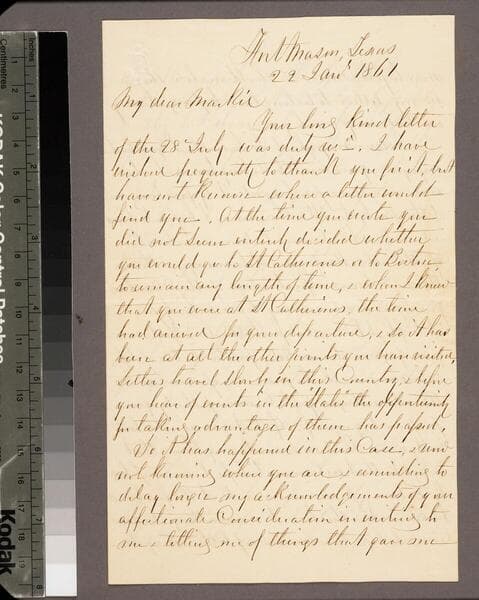 Fort Mason, Texas
22 Jany 1861
My dear Markie
Your long kind letter
of the 28 July was duly recd. I have
wished frequently to thank you for it, but
have not known where a letter would
find you. At the time you wrote you
did not seem entirely decided whether
you would go to St Catherines or to
to remain any length of time, & when I knew
that you were at St Catherines, the time
had arrived for your departure, & so it has
been at all the other points you have visited.
Letters travel slowly in this Country, & before
you hear of events in the "States" the opportunity
for taking advantage of them has passed.
So it has happened in this Case, & now
not knowing where you are & unwilling to
delay longer my acknowledgements of your
affectionate Consideration in writing to
me & telling me of things that gave me
Centimetres
Inches
KODAK Color Control Patches
Kodak